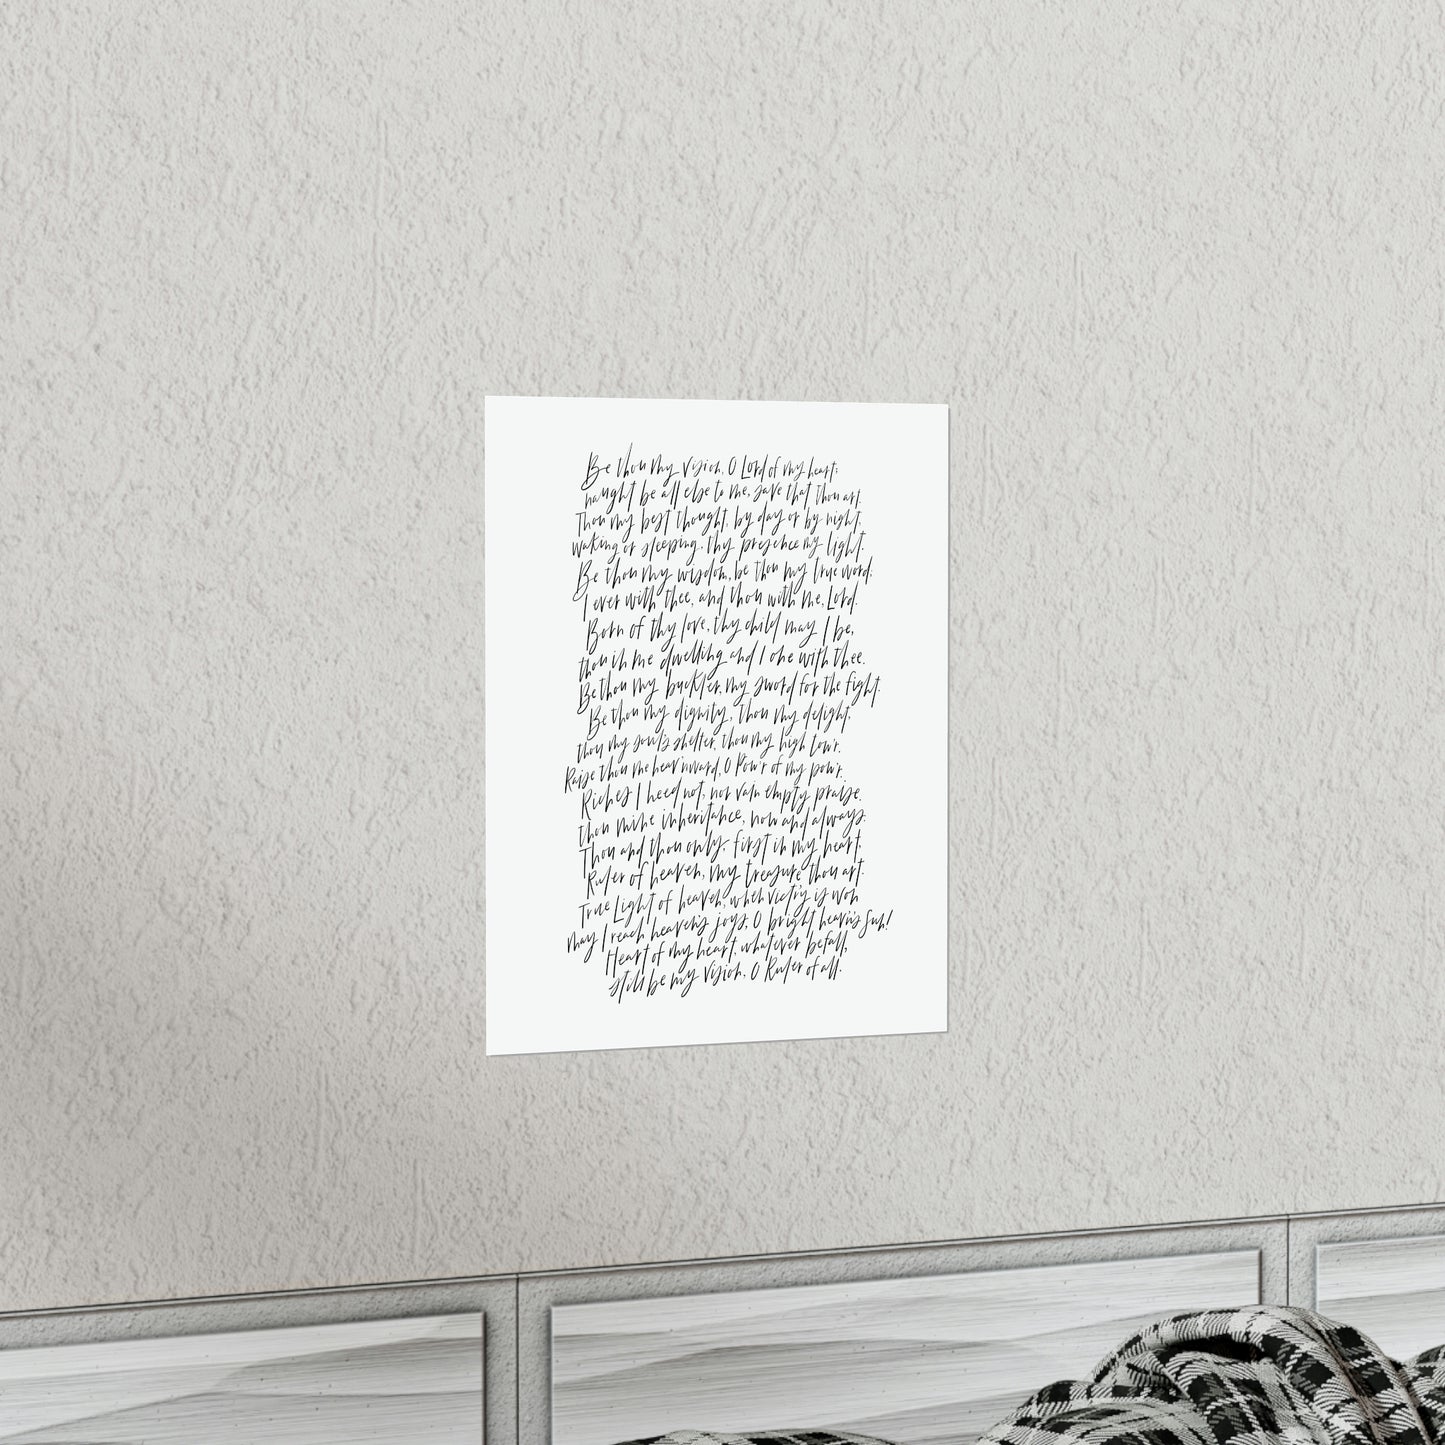 Be thou my vision, O Lord of my heart;
naught be all else to me, save that thou art.
Thou my best thought, by day or by night,
waking or sleeping, thy presence my light.
Be thou my wisdom, be thou my true word;
I ever with thee, and thou with me, Lord.
Born of thy love, thy child may I be,
thou in me dwelling and I one with thee.
Be thou my buckler, my sword for the fight.
Be thou my dignity, thou my delight,
thou my soul's shelter, thou my high tow'r.
Raise thou me heav'nward, O Pow'r of my pow'r.
Riches I heed not, nor vain empty praise,
thou mine inheritance, now and always.
Thou and thou only, first in my heart,
Ruler of heaven, my treasure thou art.
True Light of heaven, when vict'ry is won
may I reach heaven's joys, O bright heav'n's Sun!
Heart of my heart, whatever befall,
still be my vision, O Ruler of all.